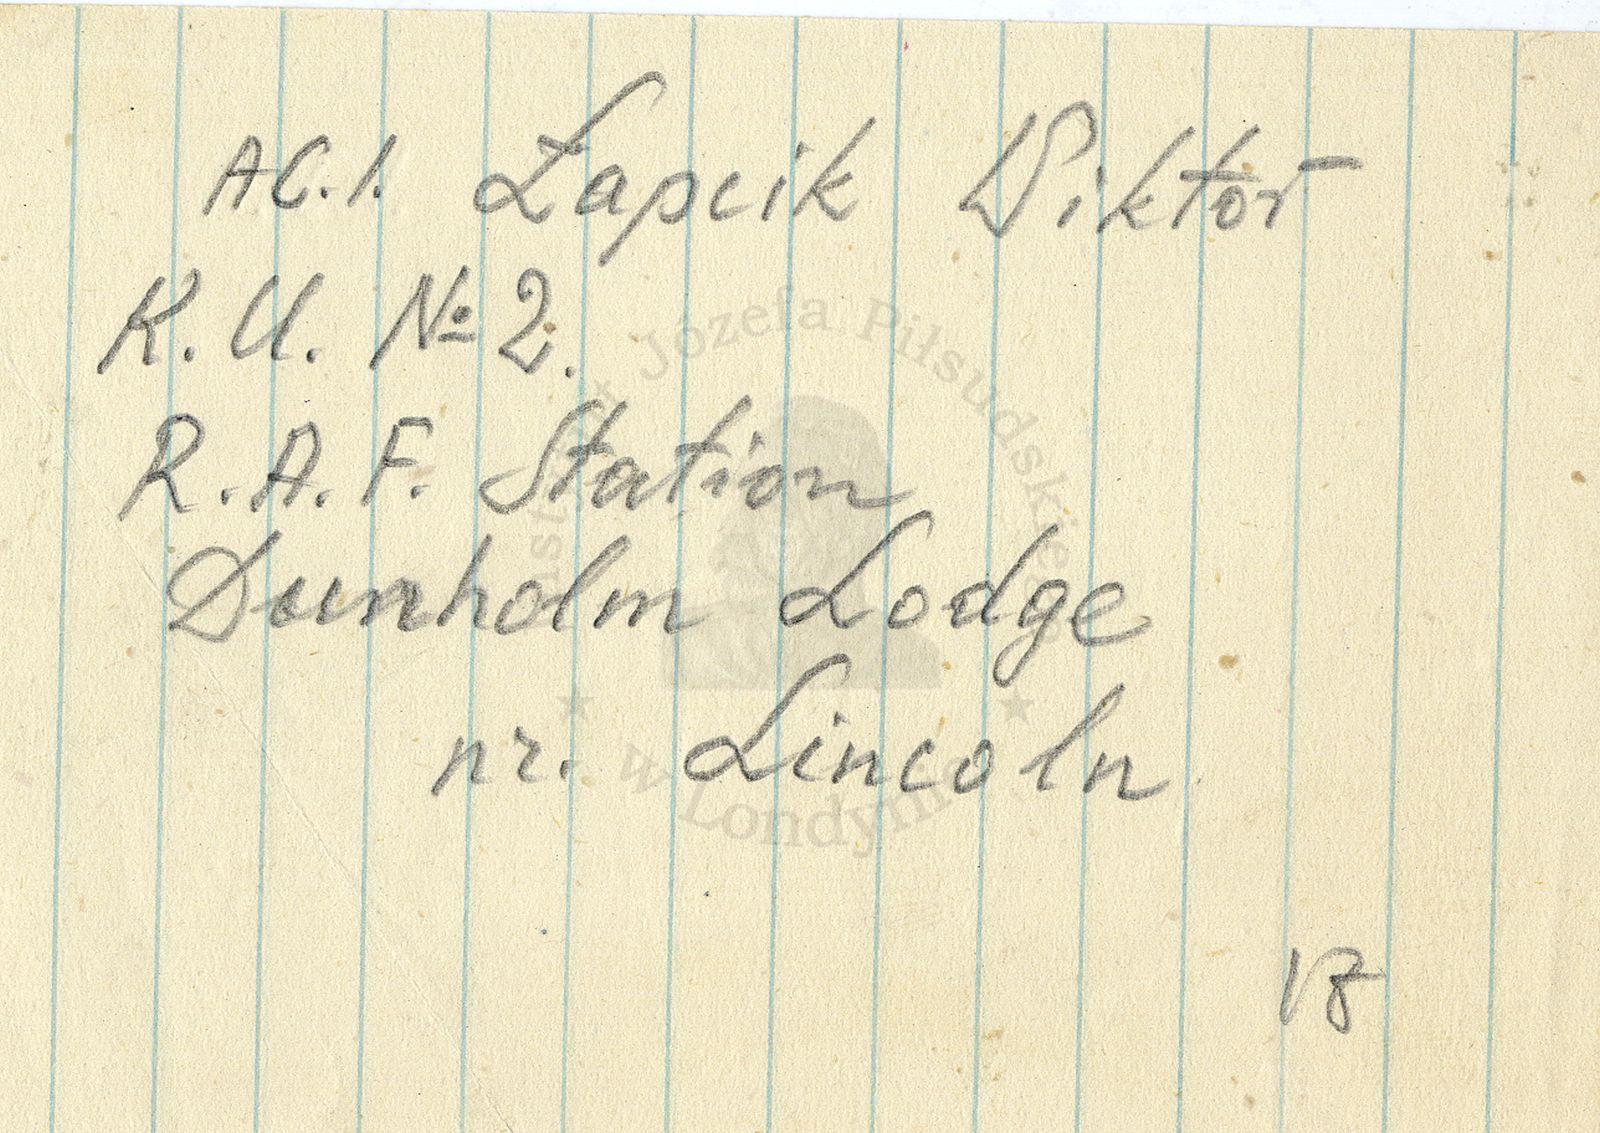 AC.1. Łapcik Wiktor
K.U. № 2.
R.A.F. Station
Dunholm Lodge
nr. Lincoln
Instytut Józefa Piłsudskiego
w Londynie